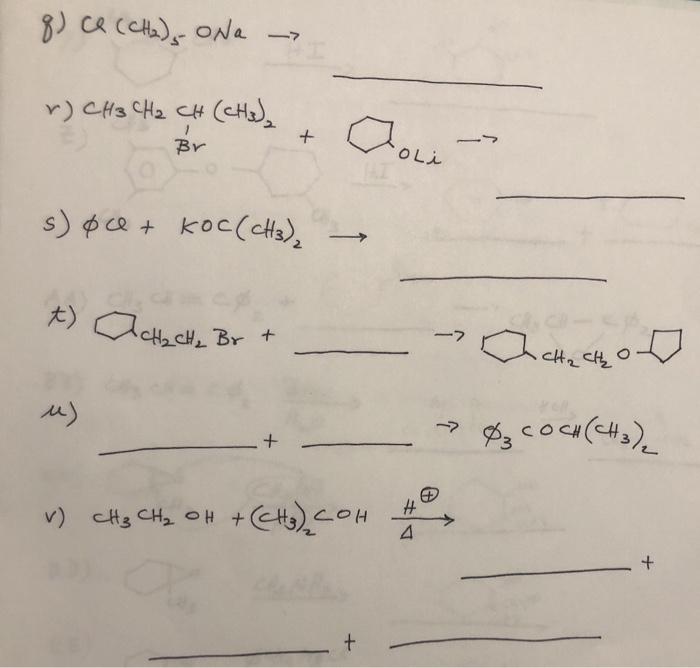 q) Cl (CH₂)₅- ONa →
r) CH3 CH2 CH (CH3)₂ + OLi →
Br
s) φCl + KOC(CH3)₂ →
t) CH₂CH₂ Br + → CH₂ CH₂ O
u) + → φ₃ COCH(CH3)₂
v) CH3 CH2 OH + (CH3)₂COH H⊕ →
Δ
+
+